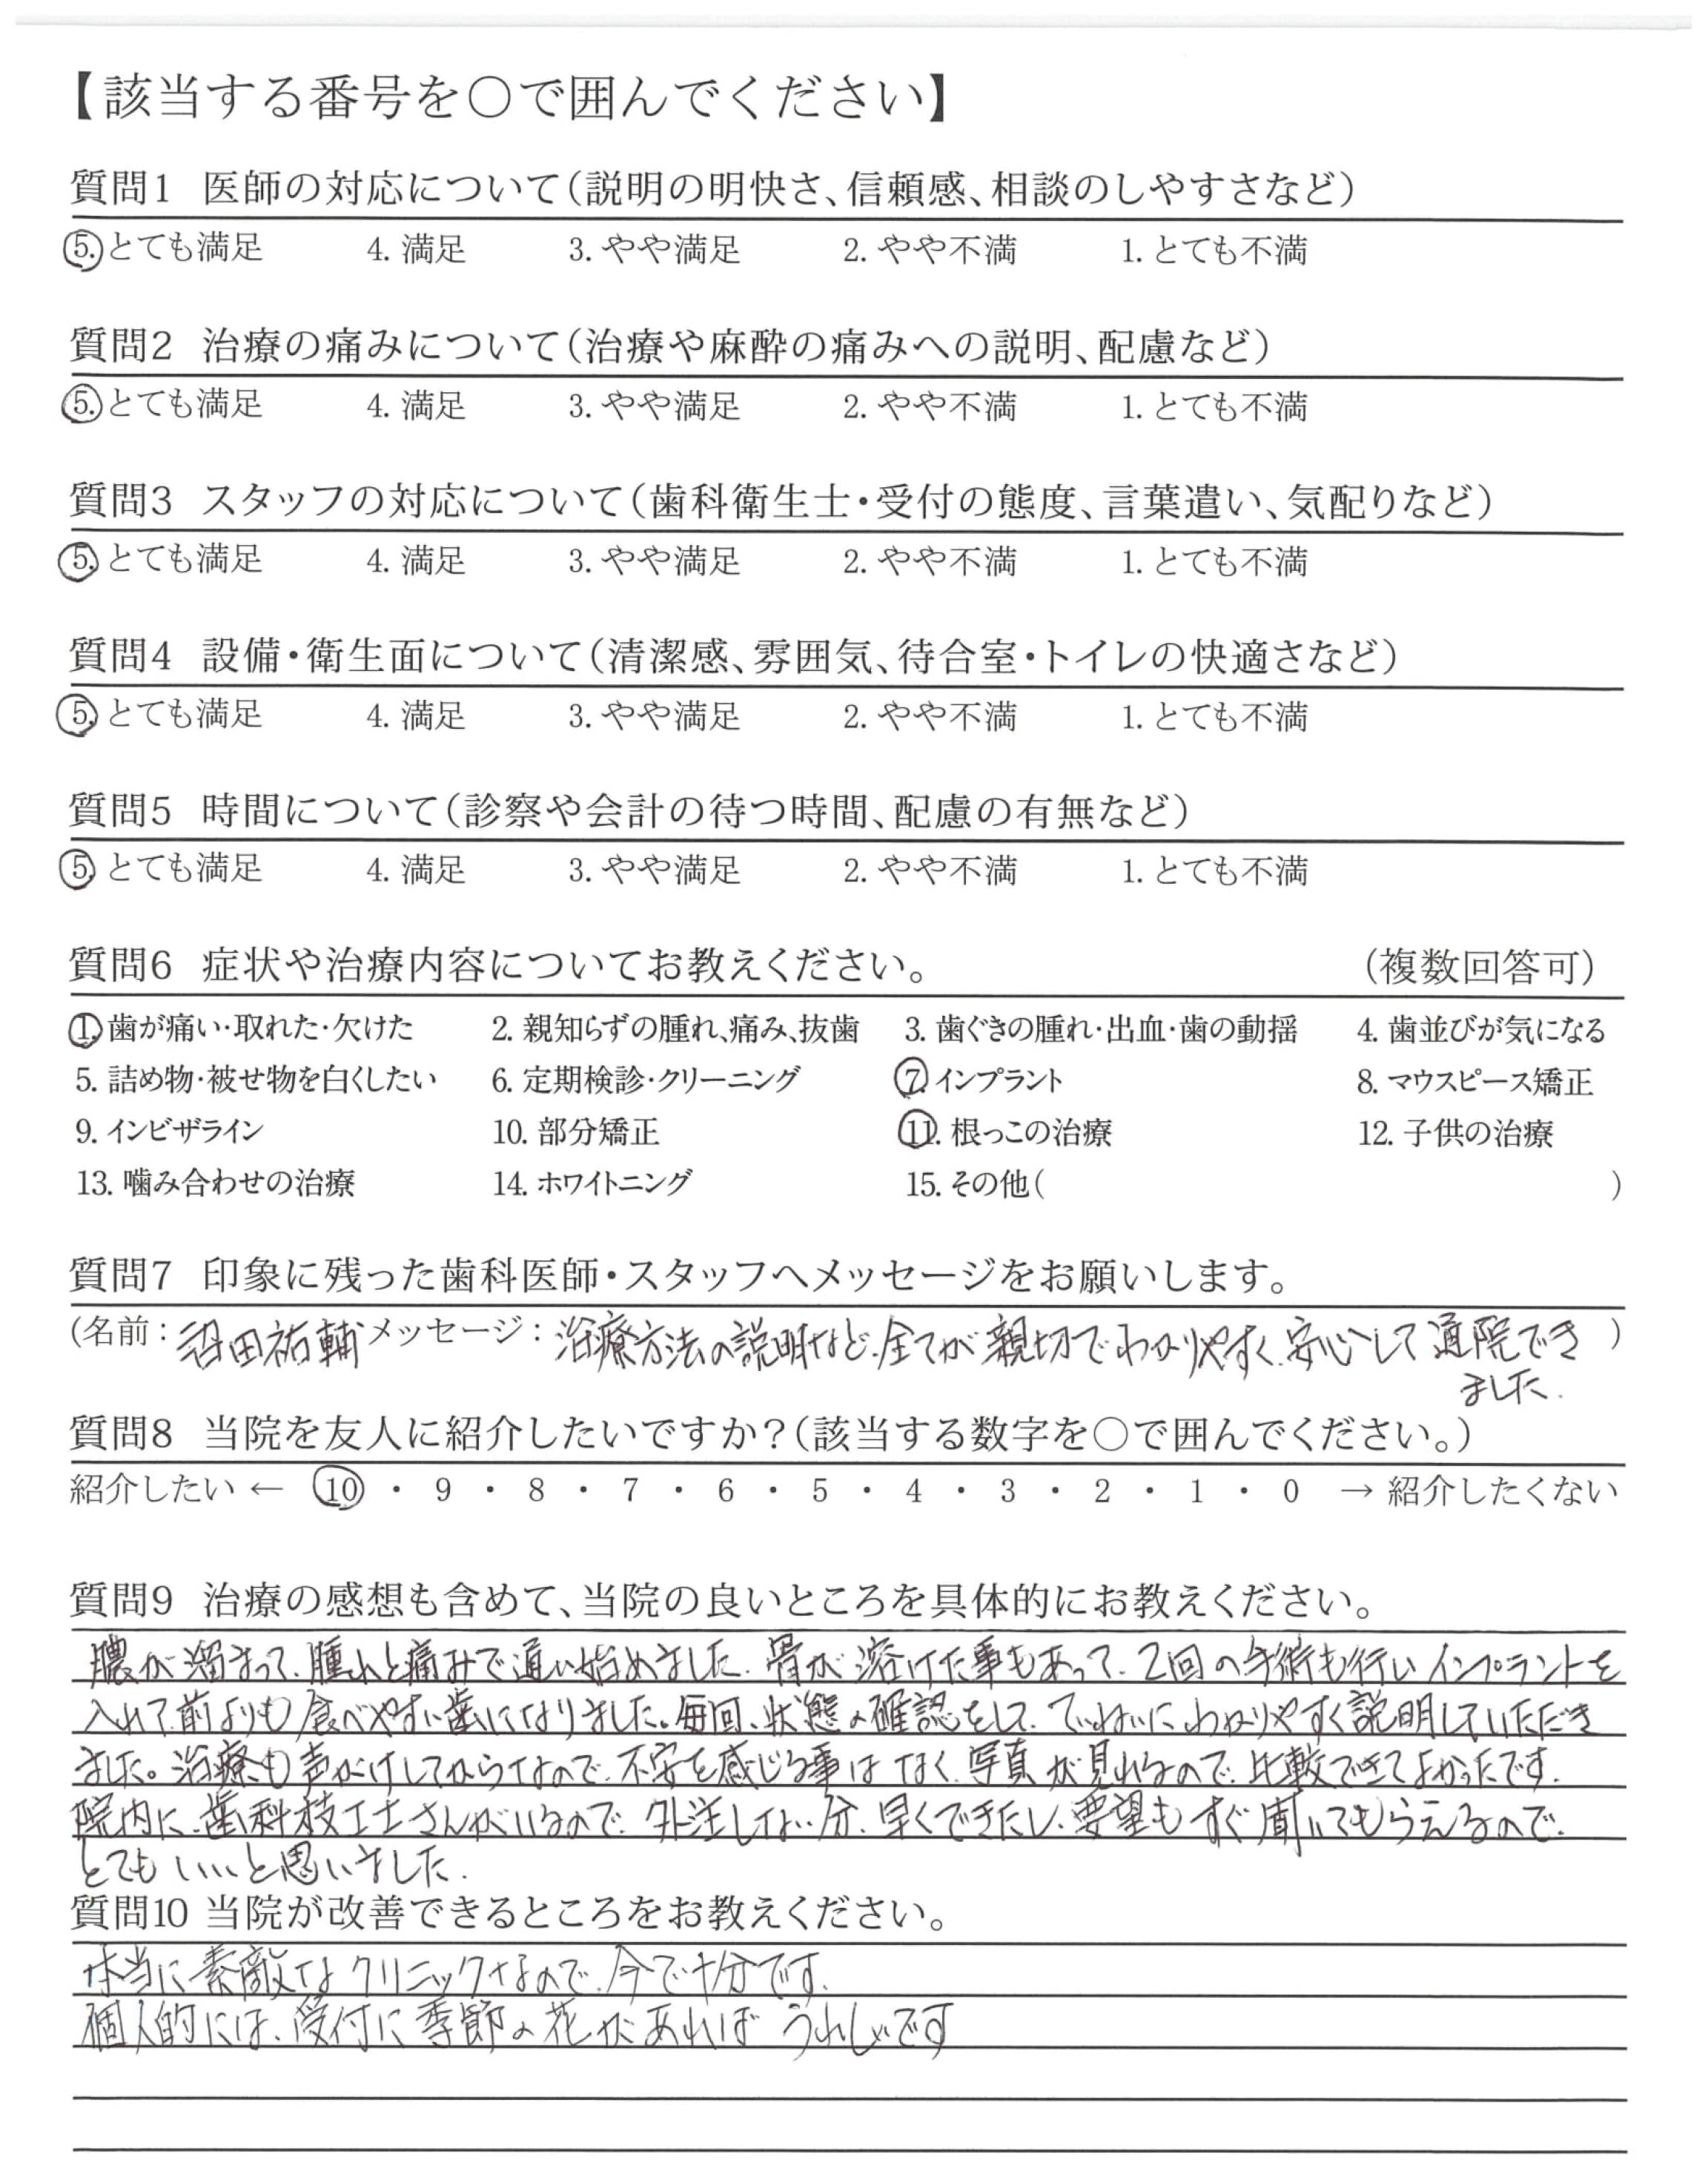 【該当する番号を〇で囲んでください】
質問1 医師の対応について(説明の明快さ、信頼感、相談のしやすさなど)
5. とても満足 4. 満足 3. やや満足 2. やや不満 1. とても不満
質問2 治療の痛みについて(治療や麻酔の痛みへの説明、配慮など)
5. とても満足 4. 満足 3. やや満足 2. やや不満 1. とても不満
質問3 スタッフの対応について(歯科衛生士・受付の態度、言葉遣い、気配りなど)
5. とても満足 4. 満足 3. やや満足 2. やや不満 1. とても不満
質問4 設備・衛生面について(清潔感、雰囲気、待合室・トイレの快適さなど)
5. とても満足 4. 満足 3. やや満足 2. やや不満 1. とても不満
質問5 時間について(診察や会計の待つ時間、配慮の有無など)
5. とても満足 4. 満足 3. やや満足 2. やや不満 1. とても不満
質問6 症状や治療内容についてお教えください。 (複数回答可)
1. 歯が痛い・取れた・欠けた 2. 親知らずの腫れ、痛み、抜歯 3. 歯ぐきの腫れ・出血・歯の動揺 4. 歯並びが気になる
5. 詰め物・被せ物を白くしたい 6. 定期検診・クリーニング 7. インプラント 8. マウスピース矯正
9. インビザライン 10. 部分矯正 11. 根っこの治療 12. 子供の治療
13. 噛み合わせの治療 14. ホワイトニング 15. その他( )
質問7 印象に残った歯科医師・スタッフへメッセージをお願いします。
(名前: 田祐輔 メッセージ: 治療方法の説明など、全てが親切でわかりやすく、安心して通院でき )
ました.
質問8 当院を友人に紹介したいですか?(該当する数字を〇で囲んでください。)
紹介したい ← 10 ・ 9 ・ 8 ・ 7 ・ 6 ・ 5 ・ 4 ・ 3 ・ 2 ・ 1 ・ 0 → 紹介したくない
質問9 治療の感想も含めて、当院の良いところを具体的にお教えください。
膿が溜まって、腫れと痛みで通い始めました. 骨が溶けた事もあって、2回の手術も行いインプラントを
入れて、前よりも食べやすい歯になりました。毎回、状態の確認をして、ていねいにわかりやすく説明していただき
ました。治療も声がけしてからなので、不安を感じる事はなく、写真が見れるので、比較できてよかったです.
院内に、歯科技工士さんがいるので、外注しない分、早くできたし、要望もすぐ聞いてもらえるので、
とてもいいと思いました.
質問10 当院が改善できるところをお教えください。
本当に素敵なクリニックなので、今で十分です.
個人的には、受付に季節の花があればうれしいです